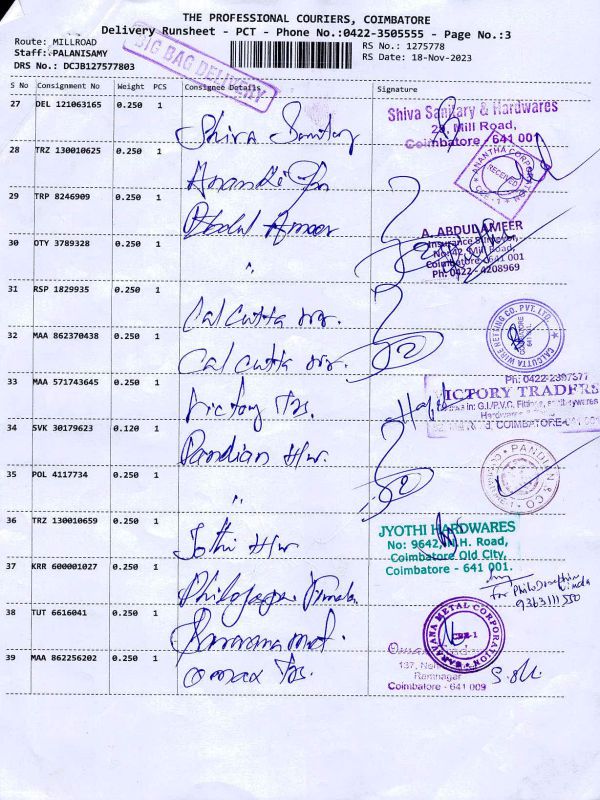 THE PROFESSIONAL COURIERS, COIMBATORE
Delivery Runsheet - PCT - Phone No.:0422-3505555 - Page No.:3
Route: MILLROAD
Staff: PALANISAMY
DRS No.: DCJB127577803
BIG BAG DELIVERY
RS No.: 1275778
RS Date: 18-Nov-2023
S No Consignment No Weight PCS Consignee Details Signature
27 DEL 121063165 0.250 1 Shiva Sanitary
Shiva Sanitary & Hardwares
29, Mill Road,
Coimbatore - 641 001
28 TRZ 130010625 0.250 1
ANANTHA CORPORATION
RECEIVED
29 TRP 8246909 0.250 1 Abdul Ameer
A. ABDUL AMEER
Insurance Surveyor,
No: 42, Mill Road,
Coimbatore - 641 001
Ph: 0422 - 4208969
30 OTY 3789328 0.250 1 "
31 RSP 1829935 0.250 1 Calcutta
CALCUTTA WIRE NETTING CO. PVT. LTD.
32 MAA 862370438 0.250 1 Calcutta
33 MAA 571743645 0.250 1 Victory Trs.
VICTORY TRADERS
COIMBATORE
34 SVK 30179623 0.120 1 Pandian H/w.
PANDIAN & CO.
35 POL 4117734 0.250 1 "
36 TRZ 130010659 0.250 1 Jothi H/w
JYOTHI HARDWARES
No: 9642, N.H. Road,
Coimbatore Old City,
Coimbatore - 641 001.
37 KRR 600001027 0.250 1
for
9363111550
38 TUT 6616041 0.250 1
SARAVANA METAL CORPORATION
CBE-1
39 MAA 862256202 0.250 1 Omax Trs.
137,
Ramnagar
Coimbatore - 641 009